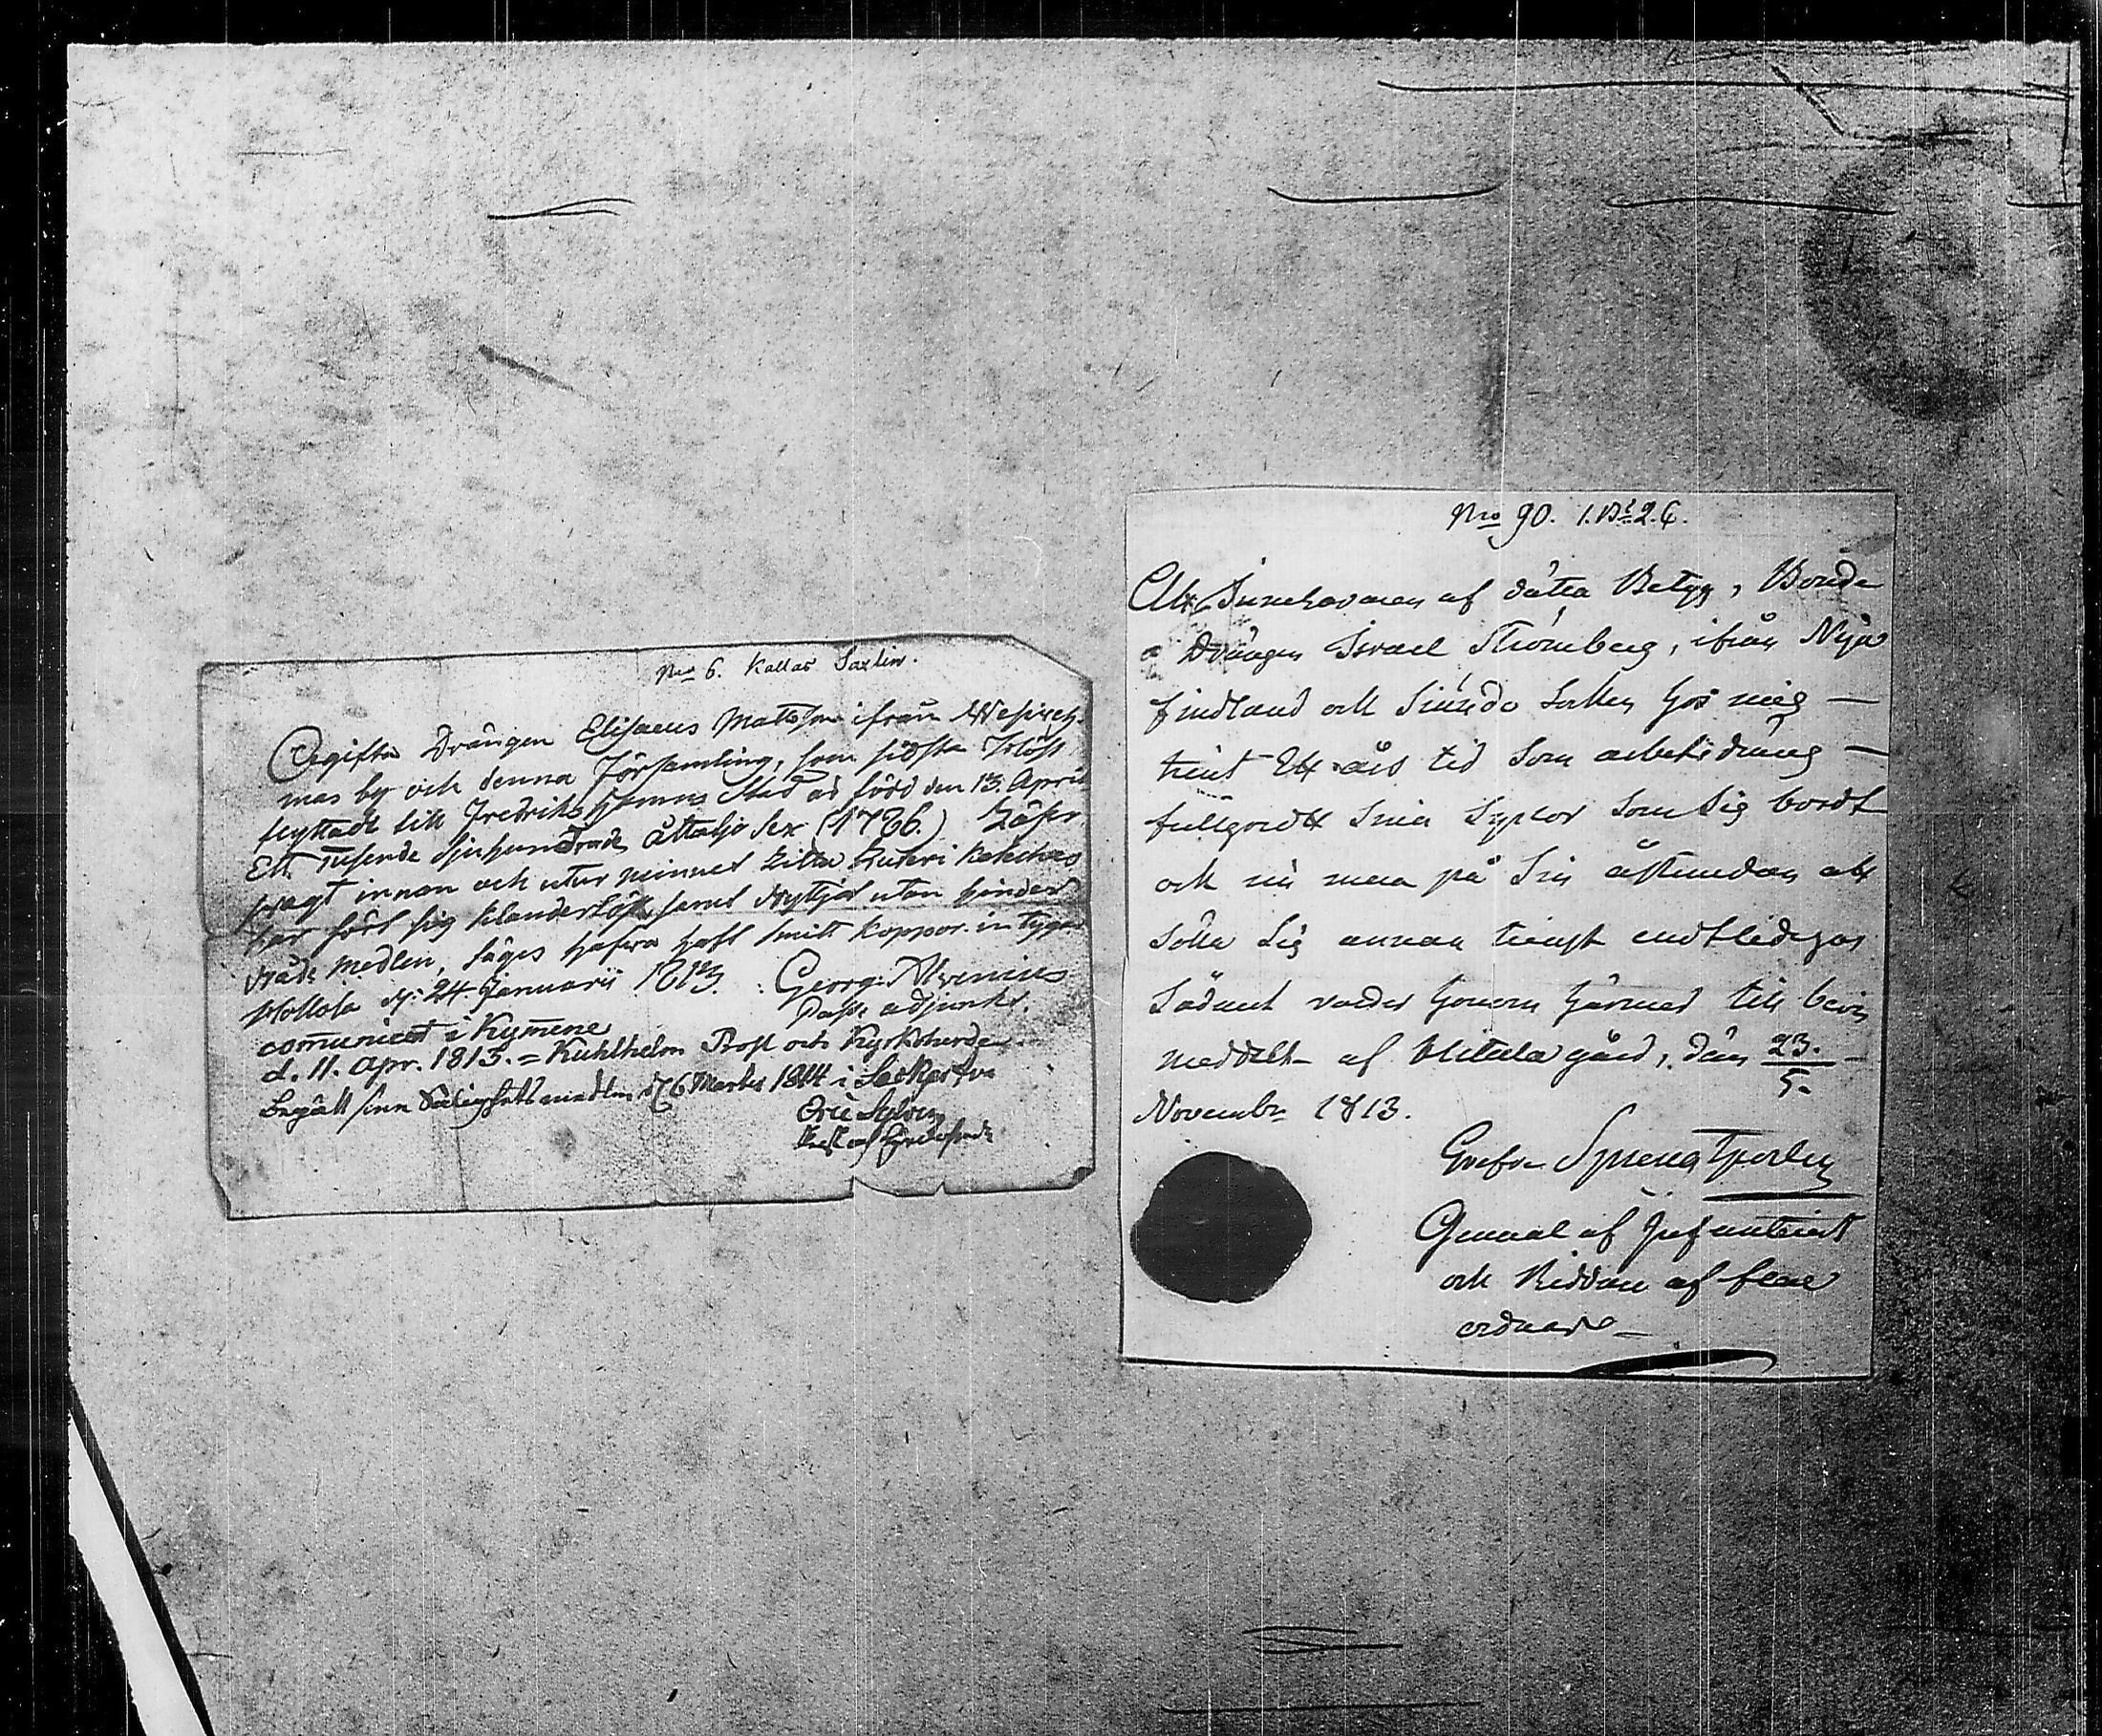 No 6. Kallas Saxlin.
Ogifta Drängen Elisaeus Mattsson ifrån Wesiveh-
mas by och denna Församling, som sidsta Höst
flyttade till Fredrikshamns Stad är född den 13. April
Ett Tusende Sjuhundrade Åttatijo Sex (1786.) Läser
svagt innan och utur minnet Lilla Lutheri Kateches
har fört sig klanderlöst samt Nyttjat utan hinder
Nåde Medlen, säges hafva haft Smitt koppor. intygar
Hollola d. 24. Januarii 1813. Georg: Alvenius
Past. adjunct.
communicet i Kymene
d. 11. Apr. 1813. = Kuhlhelm Prost och Kyrkoherde
Begått sine Salighets medlen d 6 Martii 1814 i
Eric
No 90. 1. Bd. 2. C.
Att Innehavaren af dätta Betyg, Bonde
Drängen Israel Strömberg, ifrån Nya
findland och Sockn hos mig
tient Ett års tid som arbetsdräng
fullgordt Sina Syslor som Sig bordt
och nu mera på Sin åstundan att
söka Sig annan tienst endtledigas
Sådant varder honom härmed till bevis
meddelt af gård, dän 23./5.
November 1813.
Grefve Sprengtporten
General af Infanteriet
och Riddare af flere
ordnar